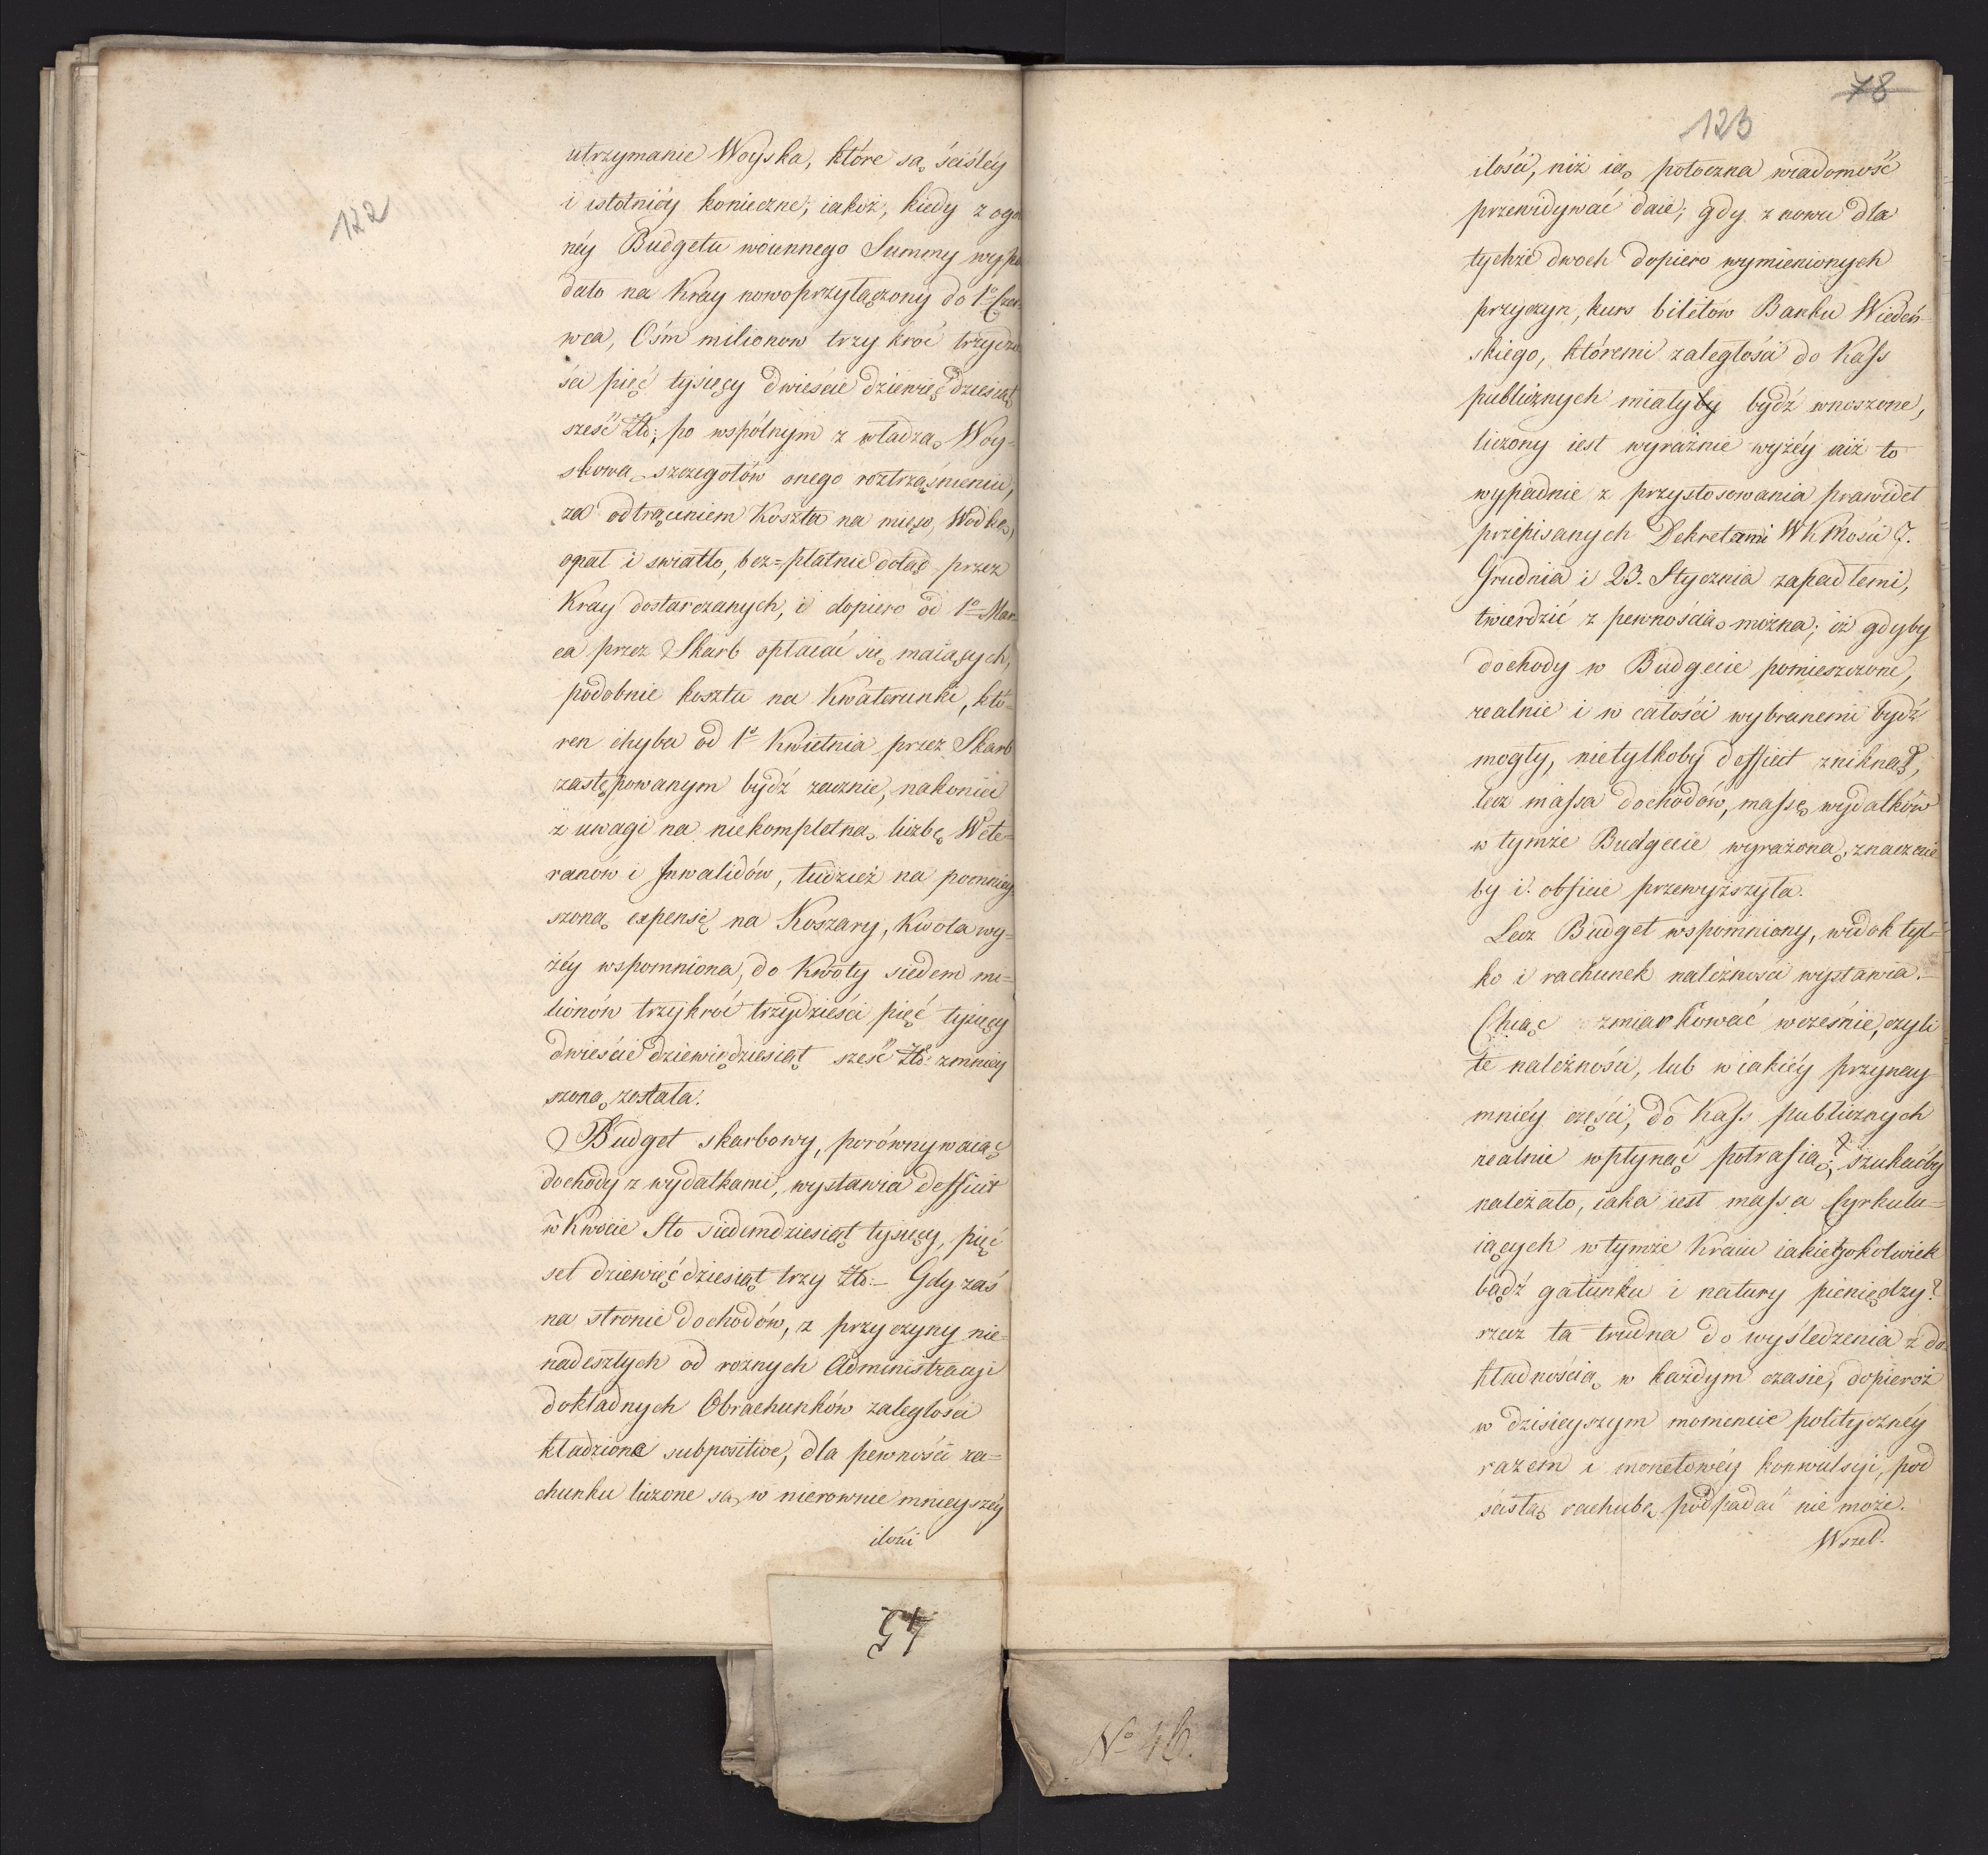 122
utrzymanie Woyska, które są ściśléy
i istotniéy konieczne; iakoż, kiedy z ogo
néy Budgetu woiennego Summy wypa
dało na Kray nowoprzyłączony do 1º Czer
wca, Ośm milionow trzy kroć trzydzie
ści pięć tysięcy dwieście dziewięćdziesiąt
sześć Złł: po wspólnym z władzą Woy-
skową szczegołów onego roztrząśnieniu,
za odtrąceniem Koszta na mięso, Wodkę,
opał i swiatło, bez=płatnie dotąd przez
Kray dostarczanych, i dopiero od 1º Mar-
ca przez Skarb opłacać się maiących,
podobnie kosztu na Kwaterunki, któ-
ren chyba od 1º Kwietnia przez Skarb
zastępowanym bydź zacznie, nakoniec
z uwagi na niekompletną liczbę Wete-
ranów i Inwalidów, tudzież na pomniey
szoną expensę na Koszary, Kwota wy=
żéy wspomniona, do Kwoty siedem mi=
lionów trzykroć trzydzieści pięć tysięcy
dwieście dziewiędziesiąt sześć Złł: zmniey
szoną została.
Budget skarbowy, porównywaiąc
dochody z wydatkami, wystawia defficit
w Kwocie Sto siedemdziesiąt tysięcy, pięć
set dziewięćdziesiąt trzy Złł:- Gdy zaś
na stronie dochodów, z przyczyny nie=
nadeszłych od roznych Administracyi
dokładnych Obrachunków zaległości
kładzione subpositive, dla pewności ra=
chunku liczone są w nierownie mnieyszéy
ilości
54
78
123
ilości, niż ią potoczna wiadomość
przewidywać daie; gdy z nowu dla
tychże dwoch dopiero wymienionych
przyczyn, kurs biletów Banku Wiedeń-
skiego, któremi zaległości do Kass
publicznych miałyby bydź wnoszone,
liczony iest wyraźnie wyżéy niż to
wypadnie z przystosowania prawideł
przepisanych Dekretami WKMości 7.
Grudnia i 23. Stycznia zapadłemi,
twierdzić z pewnością można; iż gdyby
dochody w Budgecie pomieszczone,
realnie i w całości wybranemi bydź
mogły, nietylkoby defficit zniknął,
lecz massa dochodów, massę wydatków
w tymże Budgecie wyrażoną, znacznie
by i obficie przewyższyła.
Lecz Budget wspomniony, widok tyl-
ko i rachunek należności wystawia.-
Chcąc zmiarkować wcześnie, czyli
te należności, lub w iakiéy przynay
mniéy części, do Kass publicznych
realnie wpłynąć potrafią? szukaćby
należało, iaka iest massa Cyrkulu=
iących w tymże Kraiu iakiegokolwiek
bądź gatunku i natury pieniędzy?
rzecz ta trudna do wyśledzenia z do-
kładnością w każdym czasie, dopieroż
w dzisieyszym momencie polityczney
razem i monetowéy konwulsyi, pod
ścisłą rachubę podpadać nie może.
Wszel.
Nº 46.